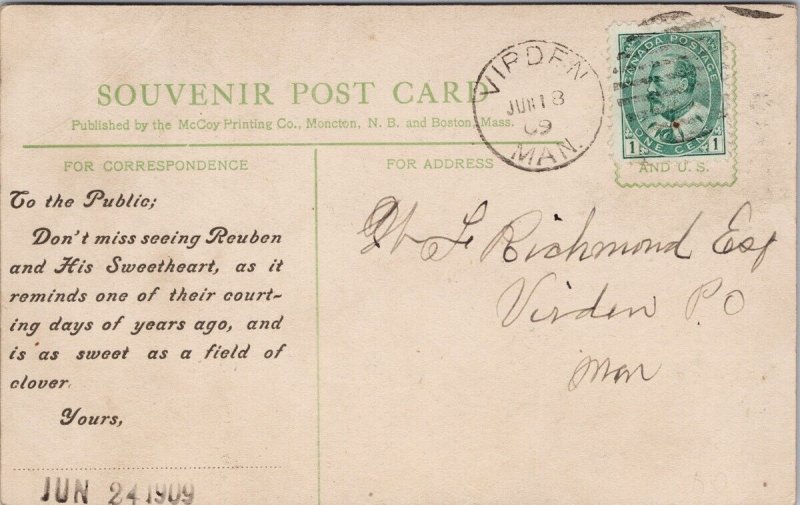 SOUVENIR POST CARD
Published by the McCoy Printing Co., Moncton, N. B. and Boston, Mass.
VIRDEN
JUN 18
09
MAN.
CANADA POSTAGE
1 ONE CENT 1
AND U. S.
FOR CORRESPONDENCE
FOR ADDRESS
To the Public;
Don't miss seeing Reuben
and His Sweetheart, as it
reminds one of their court-
ing days of years ago, and
is as sweet as a field of
clover.
Yours,
JUN 24 1909
Richmond Esq
Virden P.O
Man